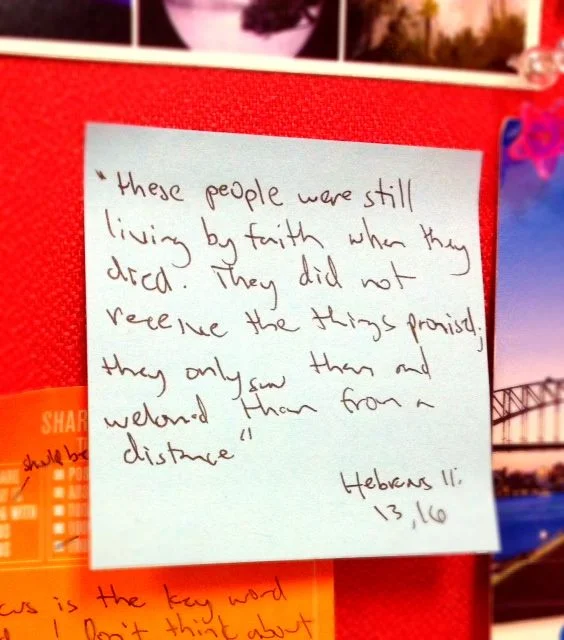 "these people were still
living by faith when they
died. They did not
receive the things promised;
they only saw them and
welcomed them from a
distance"
Hebrews 11:
13,16
SHAR
should be
WITH
is the key word
! Don't think about